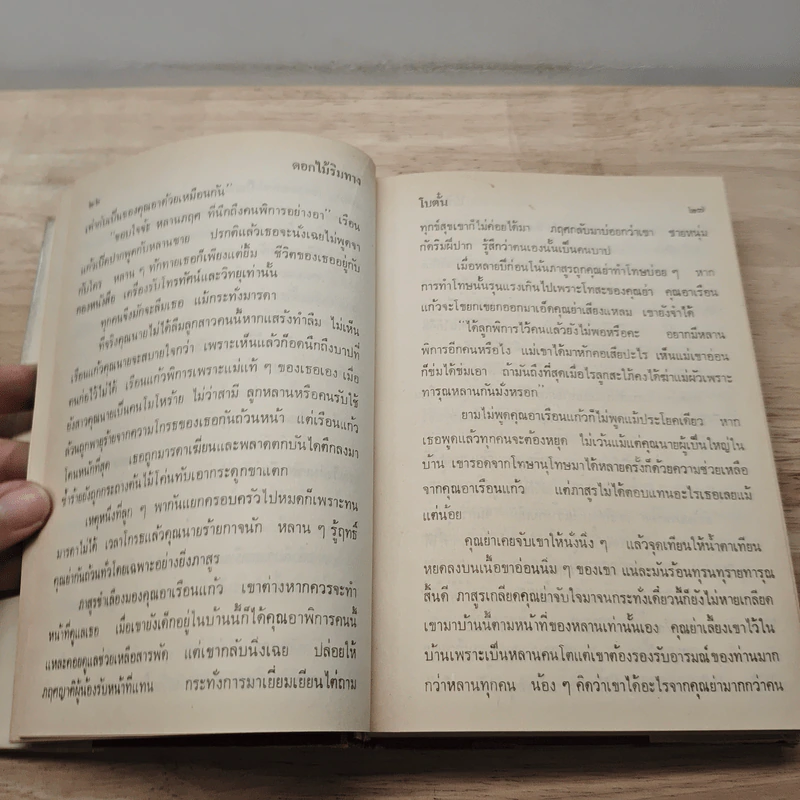 ๒๖ ดอกไม้ริมทาง
เท่ากับเป็นของคุณอาด้วยเหมือนกัน”
“ขอบใจจ้ะ หลานภฤศ ที่นึกถึงคนพิการอย่างอา” เรือน
แก้วเปิดปากพูดกับหลานชาย ปรกติแล้วเธอจะนั่งเฉยไม่พูดจา
กับใคร หลาน ๆ ทักทายเธอก็เพียงแต่ยิ้ม ชีวิตของเธออยู่กับ
กองหนังสือ เครื่องรับโทรทัศน์และวิทยุเท่านั้น
ทุกคนจึงมักจะลืมเธอ แม้กระทั่งมารดา
ที่จริงคุณนายไม่ได้ลืมลูกสาวคนนี้หากแสร้งทำลืม ไม่เห็น
เรือนแก้วคุณนายจะสบายใจกว่า เพราะเห็นแล้วก็อดนึกถึงบาปที่
คนก่อไว้ไม่ได้ เรือนแก้วพิการเพราะแม่แท้ ๆ ของเธอเอง เมื่อ
ยังสาวคุณนายเป็นคนโมโหร้าย ไม่ว่าสามี ลูกหลานหรือคนรับใช้
ล้วนถูกพายุร้ายจากความโกรธของเธอกันถ้วนหน้า แต่เรือนแก้ว
โดนหนักที่สุด เธอถูกมารดาเฆี่ยนและพลาดตกบันไดตึกลงมา
ซ้ำร้ายยังถูกกระถางต้นไม้โค่นทับเอากระดูกขาแตก
เหตุหนึ่งที่ลูก ๆ พากันแยกครอบครัวไปหมดก็เพราะทน
มารดาไม่ได้ เวลาโกรธแล้วคุณนายร้ายกาจนัก หลาน ๆ รู้ฤทธิ์
คุณย่ากันถ้วนทั่วโดยเฉพาะอย่างยิ่งภาสูร
ภาสูรชำเลืองมองคุณอาเรือนแก้ว เขาต่างหากควรจะทำ
หน้าที่ดูแลเธอ เมื่อเขายังเด็กอยู่ในบ้านนี้ก็ได้คุณอาพิการคนนี้
แหละคอยดูแลช่วยเหลือสารพัด แต่เขากลับนิ่งเฉย ปล่อยให้
ภฤศญาติผู้น้องรับหน้าที่แทน กระทั่งการมาเยี่ยมเยียนไต่ถาม
โบตั๋น ๒๗
ทุกข์สุขเขาก็ไม่ค่อยได้มา ภฤศกลับมาบ่อยกว่าเขา ชายหนุ่ม
กัดริมฝีปาก รู้สึกว่าตนเองนั้นเป็นคนบาป
เมื่อหลายปีก่อนโน้นภาสูรถูกคุณย่าทำโทษบ่อย ๆ หาก
การทำโทษนั้นรุนแรงเกินไปเพราะโทสะของคุณย่า คุณอาเรือน
แก้วจะโขยกเขยกออกมาเอ็ดคุณย่าเสียงแหลม เขายังจำได้
“ได้ลูกพิการไว้คนแล้วยังไม่พอหรือคะ อยากมีหลาน
พิการอีกคนหรือไง แม่เขาได้มาหักคอเสียปะไร เห็นแม่เขาอ่อน
ก็ข่มได้ข่มเอา ถ้ามันถึงที่สุดเมื่อไรลูกสะใภ้คงได้ฆ่าแม่ผัวเพราะ
ทารุณหลานกันมั่งหรอก”
ยามไม่พูดคุณอาเรือนแก้วก็ไม่พูดแม้ประโยคเดียว หาก
เธอพูดแล้วทุกคนจะต้องหยุด ไม่เว้นแม้แต่คุณนายผู้เป็นใหญ่ใน
บ้าน เขารอดจากโทษานุโทษมาได้หลายครั้งก็ด้วยความช่วยเหลือ
จากคุณอาเรือนแก้ว แต่ภาสูรไม่ได้ตอบแทนอะไรเธอเลยแม้
แต่น้อย
คุณย่าเคยจับเขาให้นั่งนิ่ง ๆ แล้วจุดเทียนให้น้ำตาเทียน
หยดลงบนเนื้อขาอ่อนนิ่ม ๆ ของเขา แน่ละมันร้อนทุรนทุรายทารุณ
สิ้นดี ภาสูรเกลียดคุณย่าจับใจมาจนกระทั่งเดี๋ยวนี้ก็ยังไม่หายเกลียด
เขามาบ้านนี้ตามหน้าที่ของหลานเท่านั้นเอง คุณย่าเลี้ยงเขาไว้ใน
บ้านเพราะเป็นหลานคนโตแต่เขาต้องรองรับอารมณ์ของท่านมาก
กว่าหลานทุกคน น้อง ๆ คิดว่าเขาได้อะไรจากคุณย่ามากกว่าคน